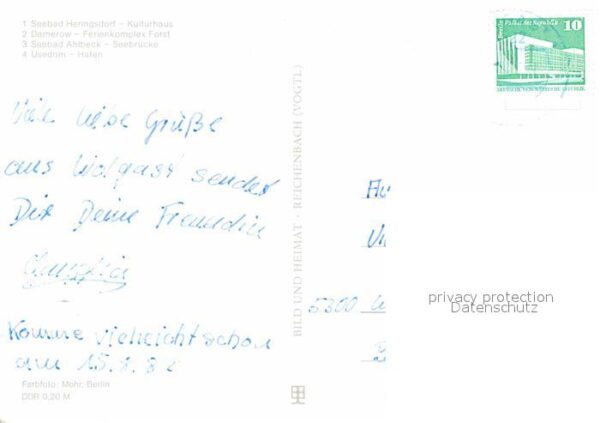 1 Seebad Heringsdorf – Kulturhaus
2 Damerow – Ferienkomplex Forst
3 Seebad Ahlbeck – Seebrücke
4 Usedom – Hafen
Berlin, Palast der Republik 10
DEUTSCHE DEMOKRATISCHE REPUBLIK
Viele liebe Grüße
aus Wolgast sendet
Dir Deine Freundin
Komme vielleicht schon
am 15.8.82
Farbfoto: Mohr, Berlin
DDR 0,20 M
BILD UND HEIMAT · REICHENBACH (VOGTL)
5300
privacy protection
Datenschutz